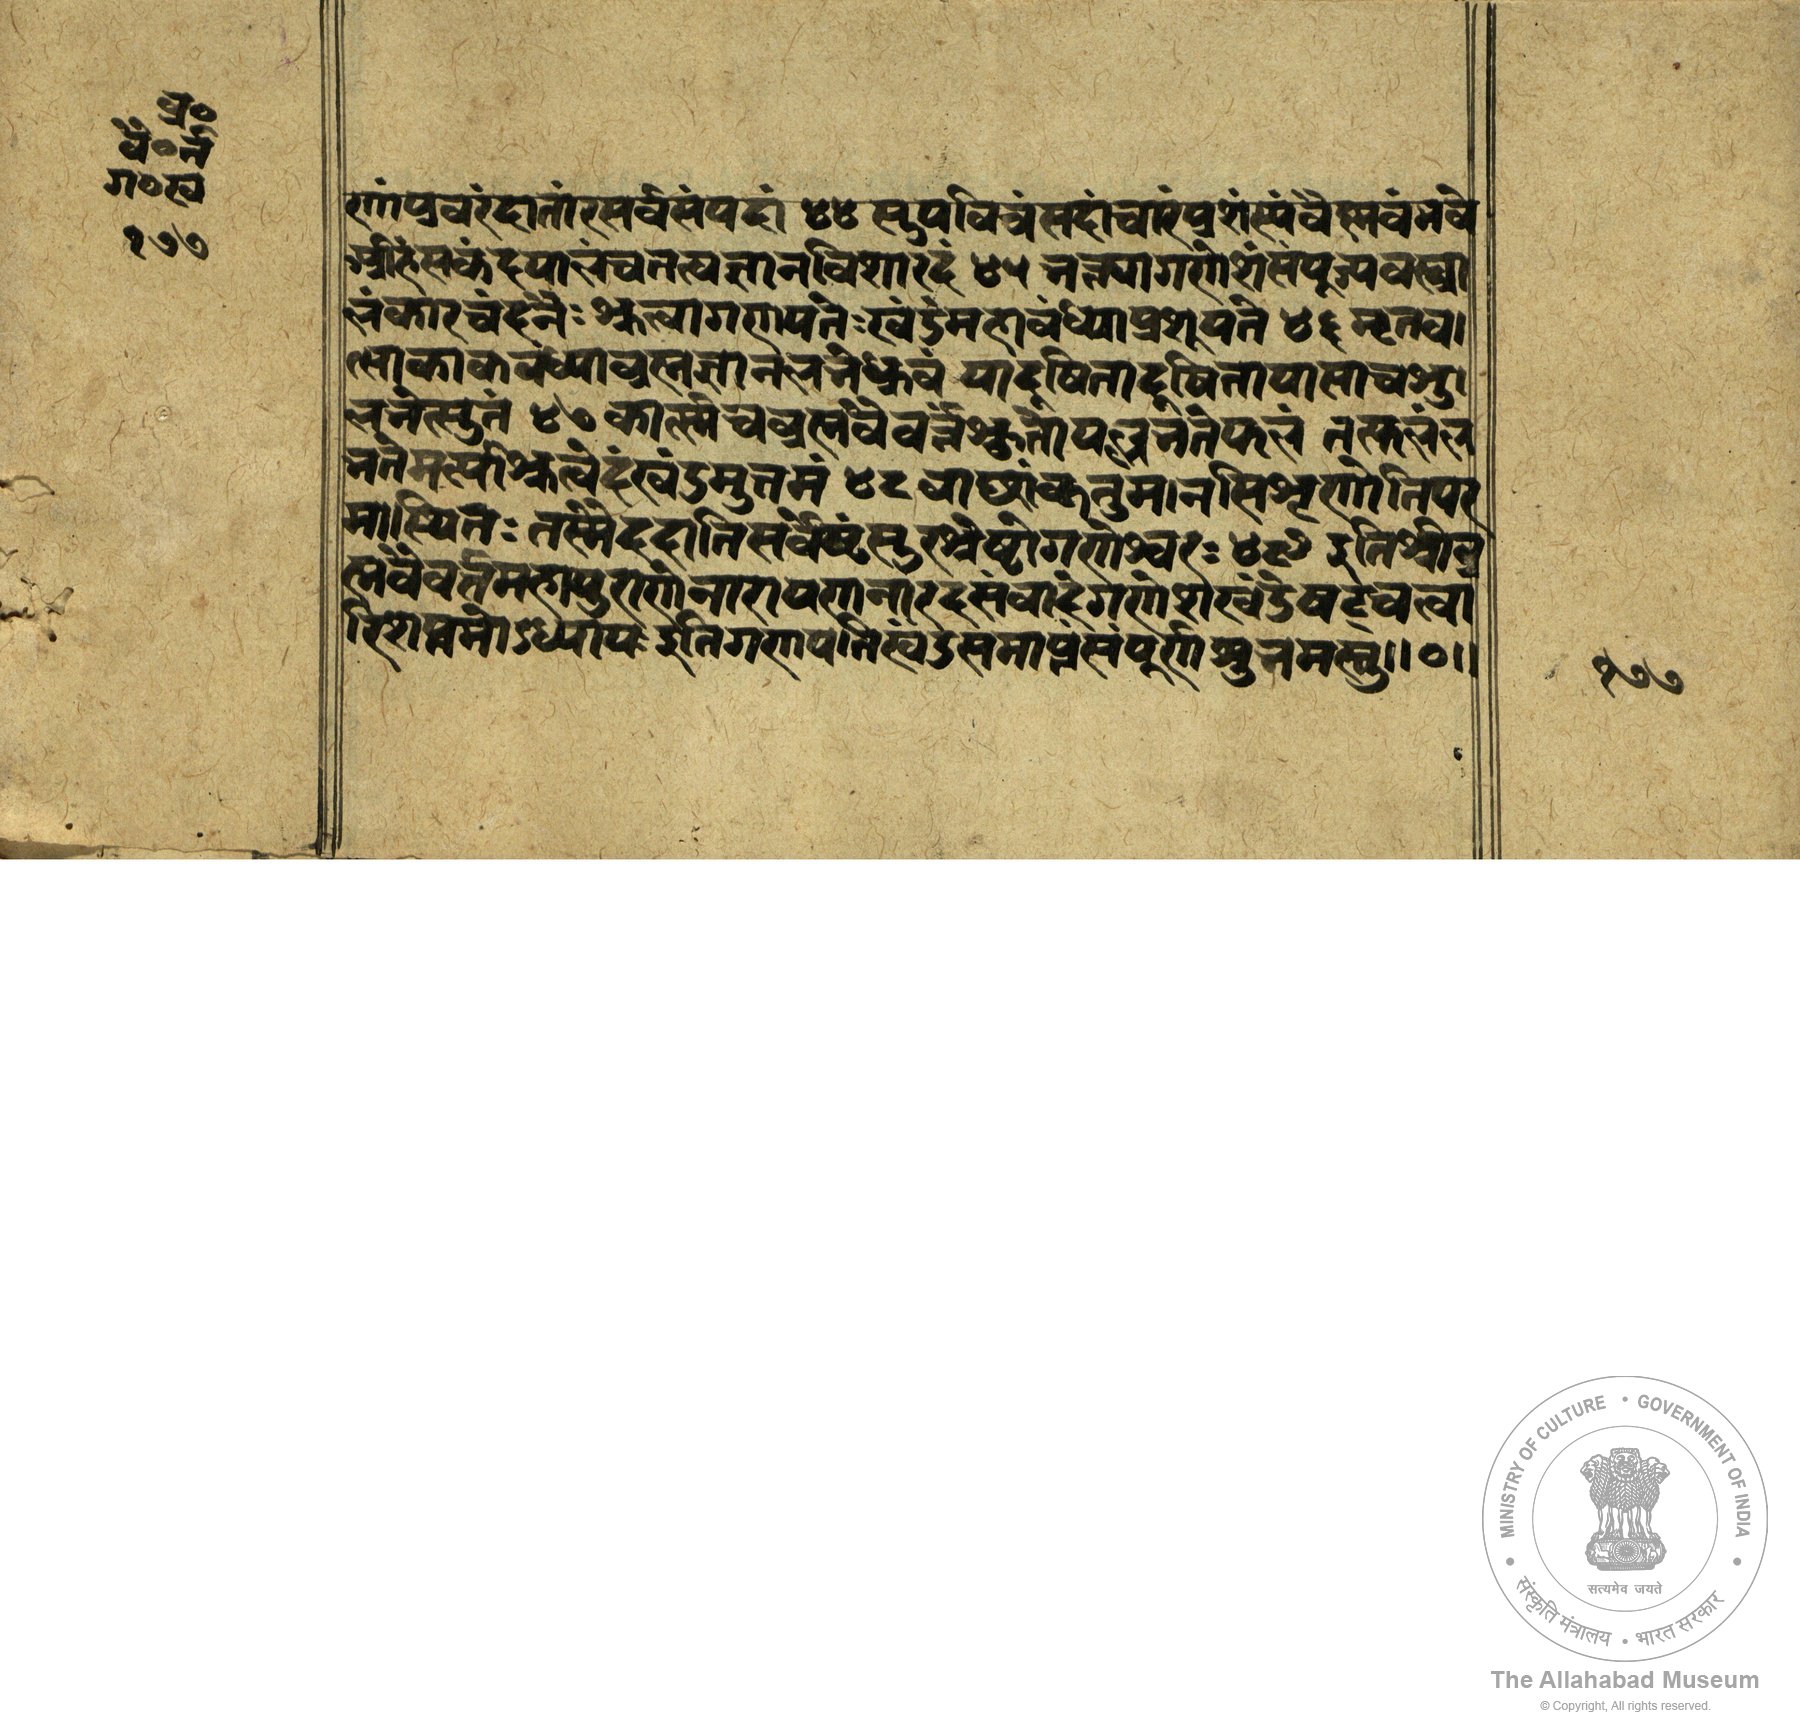 ब्र०
वै०र्त
ग०ख
१७७
णां प्रवरं दातारं सर्वसंपदां ४४ सुपवित्रं सदाचारं प्रशंस्यं वैष्णवं भवे
अहिंसकं दयालं च तत्वज्ञानविशारदं ४५ भक्त्या गणेशं संपूज्य वस्त्रा
लंकारचंदनैः श्रुत्वा गणपतेः खंडं महावंध्या प्रशूयते ४६ मृतव
त्सा काकवंध्या व्रह्मज्ञानं लभेध्रुवं या दूषिता दूषिता या सा च शु
लभेत्सुतं ४७ कार्त्स्नं च व्रह्मवैवर्त्तं श्रुतो यद्व्रजते फलं तत्फलं ल
भते मर्त्यो श्रुत्वेदं खंडमुत्तमं ४८ वाछां कृतु मानसि शृणोति पर
मास्थितः तस्मै ददाति सर्वेष्टं सुरश्रेष्टो गणेश्वरः ४९ इति श्रीव्र
ह्मवैवर्तमहापुराणे नारायणनारदसंवादे गणेशखंडे षट्चत्वा
रिंशत्तमोऽध्यायः इति गणपतिखंड समाप्त संपूर्ण शुभमस्तु ॥०॥
१७७
MINISTRY OF CULTURE • GOVERNMENT OF INDIA
सत्यमेव जयते
संस्कृति मंत्रालय • भारत सरकार
The Allahabad Museum
© Copyright, All rights reserved.